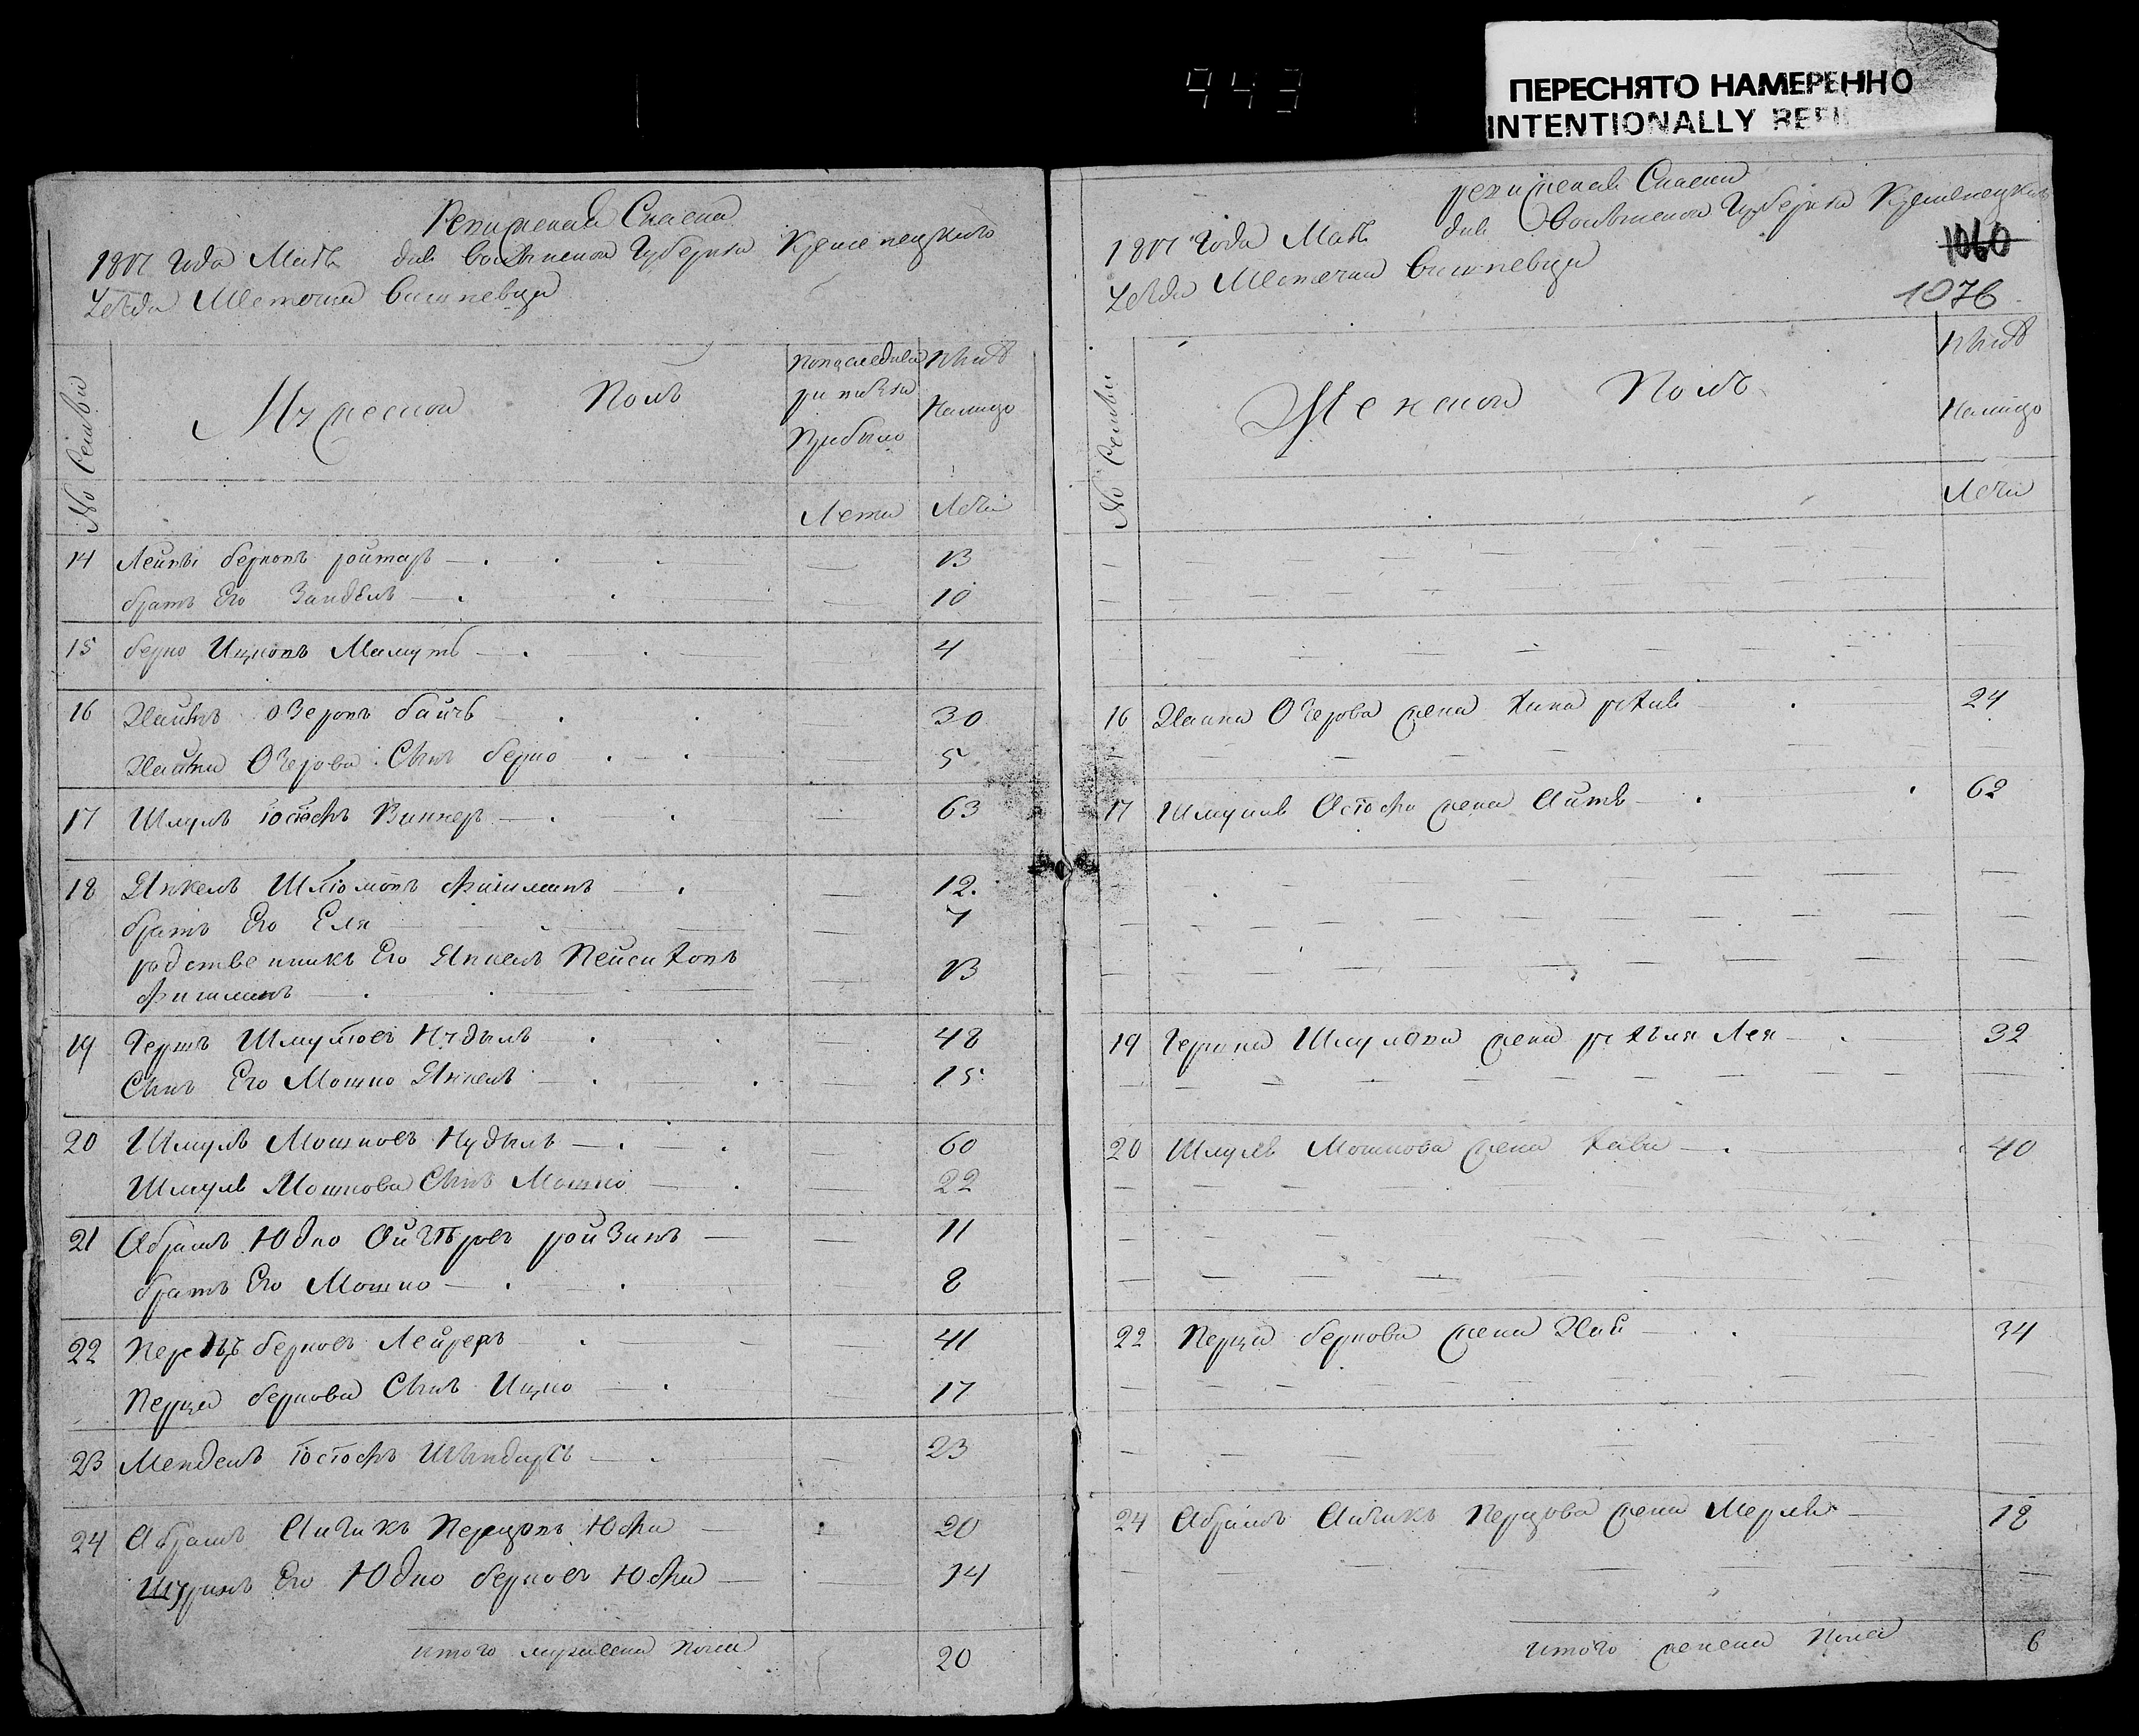 443
ПЕРЕСНЯТО НАМЕРЕННО
INTENTIONALLY REFI
Ревижская Сказка
года Маія дня Волынской Губерніи Кременецкого
Местечка Вишневца
№ Семьи
Мужеской Полъ
Прибыло
Лета
Налицо
Лета
14 Лейба берковъ ройтаръ 13
братъ Его Зандель 10
15 берко Ицковъ Мамутъ 4
16 Хаимъ Озеровъ 30
Хаима Озерова Сынъ берко 5
17 Шмуль Іосіофъ Виннеръ 63
18 Янкель Шліомовъ Фишманъ 12
братъ Его Еля 7
родственникъ Его Янкель Пейсаховъ 13
Фишманъ
19 Гершъ Шмулiовъ Нудыль 48
Сынъ Его Мошко Янкель 15
20 Шмуль Мошковъ Нудыль 60
Шмуля Мошкова Сынъ Мошко 22
21 Абрамъ Юдко ройзинъ 11
братъ Его Мошко 8
22 Перецъ берковъ Лейреръ 41
Перца беркова Сынъ Ицко 17
23 Мендель Іосіофъ 23
24 Абрамъ Айзикъ Перцовъ Юфа 20
Шуринъ Его Юдко берковъ Юфа 14
итого мужеска пола 20
ревижская Сказка
года Маія дня Волынской Губерніи Кременецкого
Местечка Вишневца
1060
1076
№ Семьи
Женской Полъ
Налицо
Лета
16 Хаима Озерова жена Хина 24
17 Шмуля Іосіофа жена 62
19 Гершка Шмулёва жена рухля Лея 32
20 Шмуля Мошкова жена Хава 40
22 Перца беркова жена Хая 34
24 Абрамъ Айзикъ Перцова жена Мерля 18
итого женска пола 6